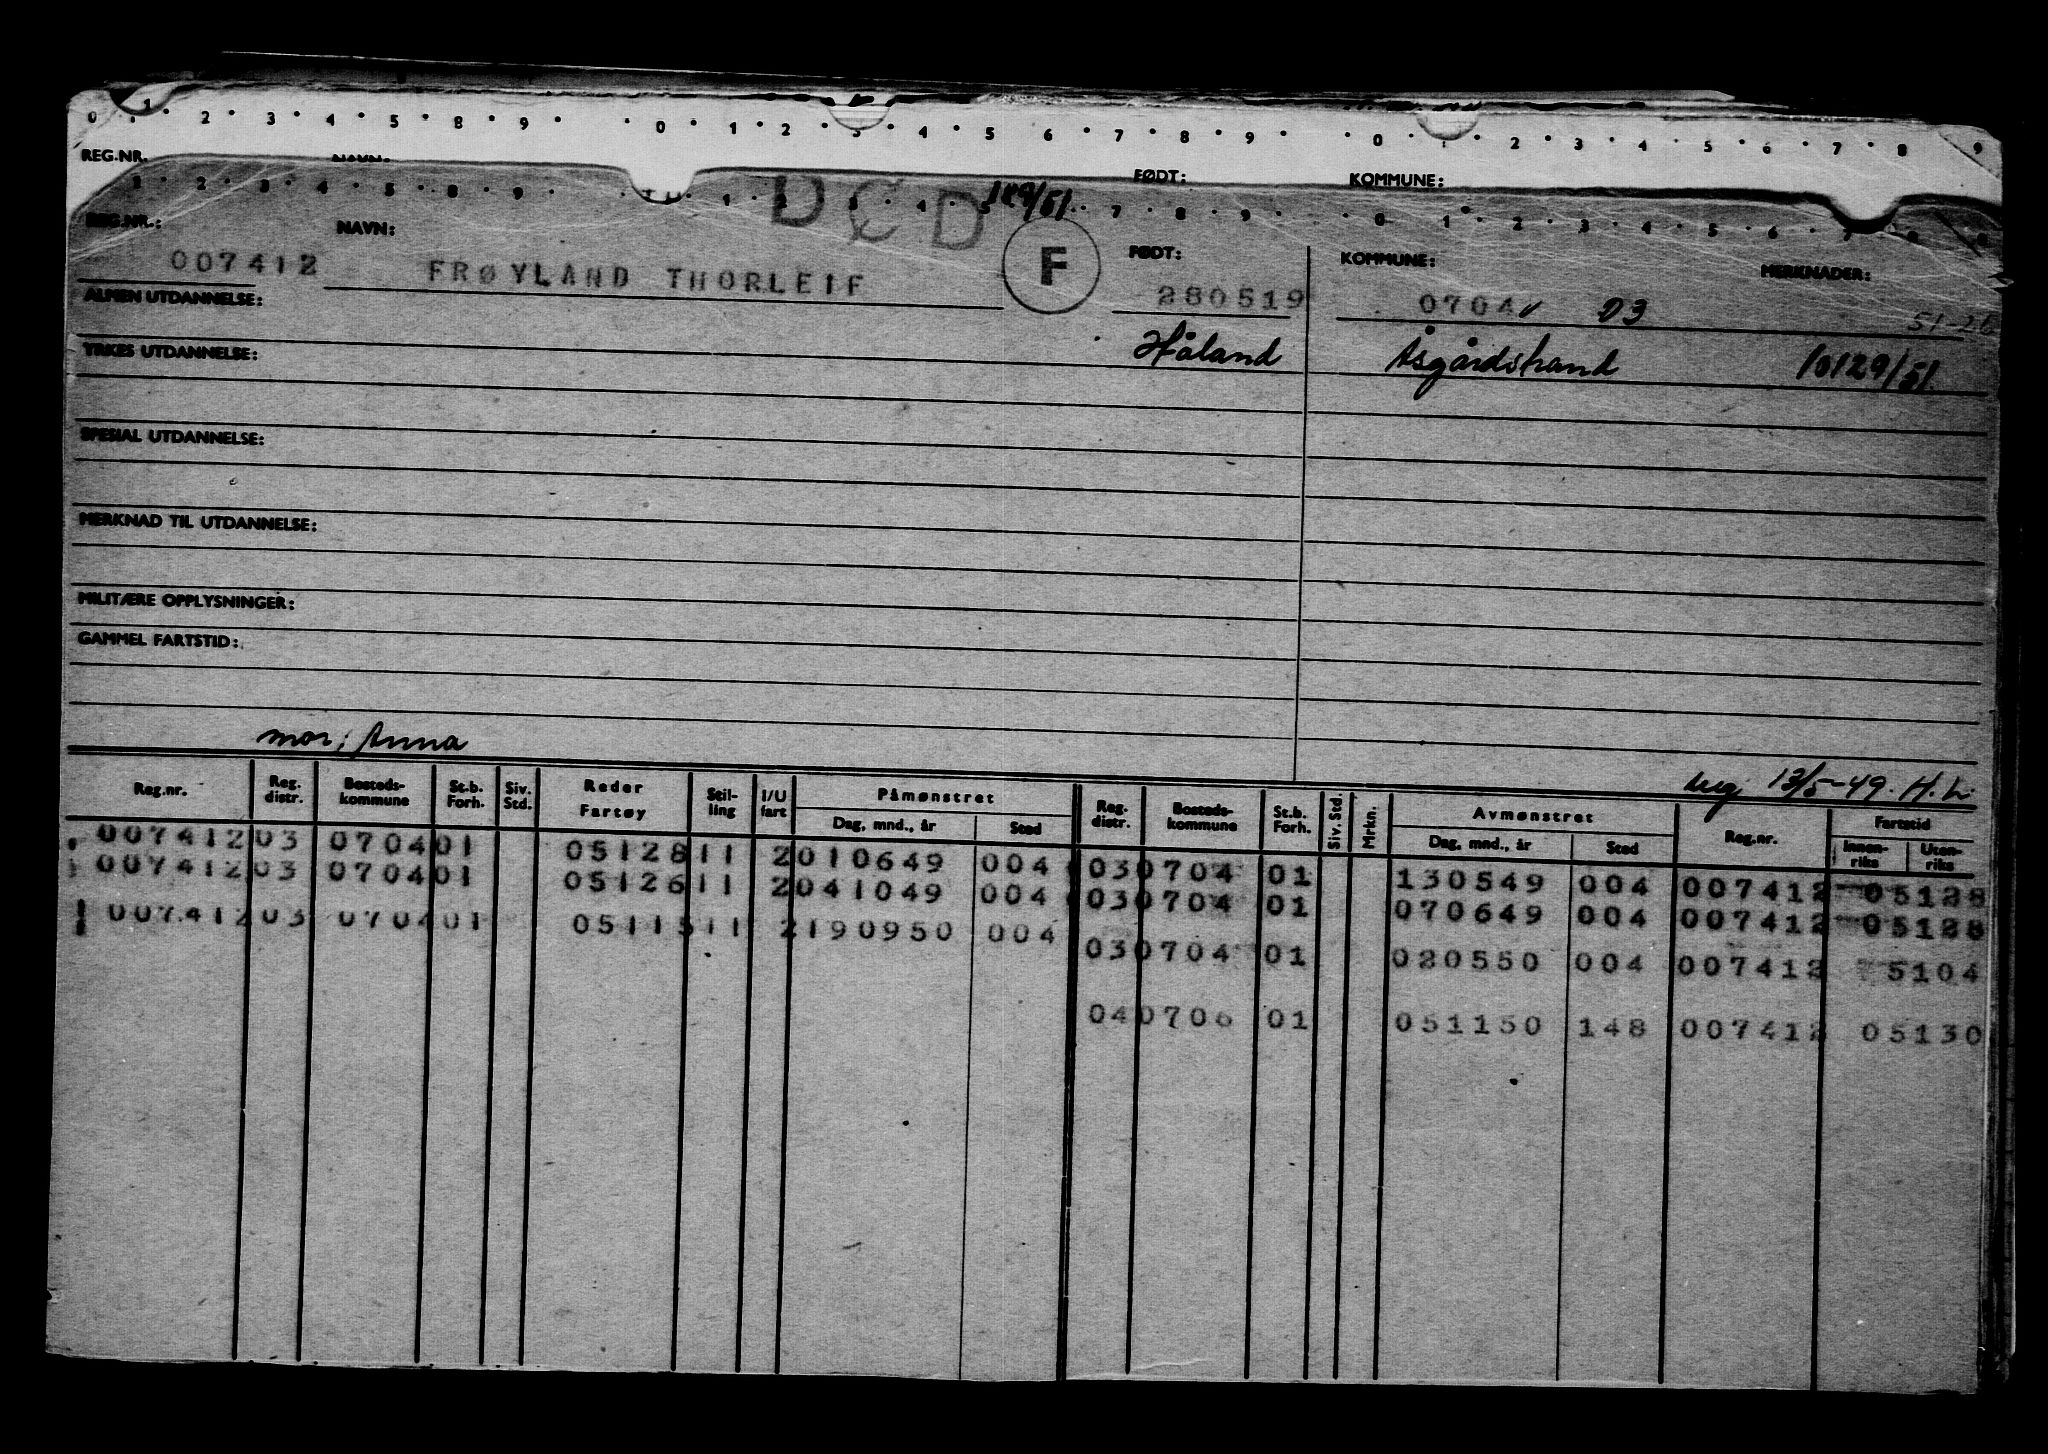 0 1 2 3 4 5 8 9 0 1 2 3 4 5 6 7 8 9 0 1 2 3 4 5 6 7 8 9
REG.NR. NAVN: FØDT: KOMMUNE:
1 2 3 4 5 8 9 1 2 3 4 5 7 8 9 0 1 2 3 4 5 6 7 8
DØD
REG.NR.: NAVN: F FØDT: KOMMUNE: MERKNADER:
007412 FRØYLAND THORLEIF 280519 0704 03 51-26
ALMEN UTDANNELSE:
Håland Åsgårdstrand 10129/51
YRKES UTDANNELSE:
SPESIAL UTDANNELSE:
MERKNAD TIL UTDANNELSE:
MILITÆRE OPPLYSNINGER:
GAMMEL FARTSTID:
mor; Anna
13/5-49. H. L.
Reg.nr. Reg. distr. Bosteds-kommune St.b. Forh. Siv. Std. Reder Fartøy Stil-ling I/U fart Påmønstret Dag, mnd., år Sted Reg. distr. Bosteds-kommune St.b. Forh. Siv. Std. Mrkn. Avmønstret Dag, mnd., år Sted Reg.nr. Fartstid Innen-riks Uten-riks
007412 03 0704 01 05128 11 2 010649 004 03 0704 01 130549 004 007412 05128
007412 03 0704 01 05126 11 2 041049 004 03 0704 01 070649 004 007412 05128
007412 03 0704 01 05115 11 2 190950 004 03 0704 01 020550 004 007412 5104
04 0706 01 051150 148 007412 05130